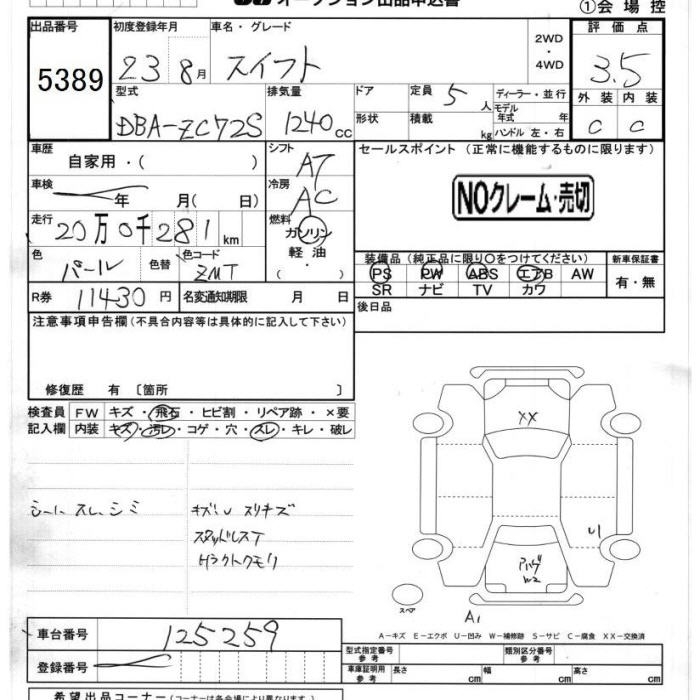 オークション出品申込書
①会場控
出品番号 初度登録年月 車名・グレード 2WD・4WD 評価点
5389 23 8月 スイフト 3.5
型式 排気量 ドア 定員 5人 ディーラー・並行 外装 内装
DBA-ZC72S 1240cc 形状 積載 kg モデル年式 年 ハンドル 左・右 C C
車歴 自家用・( ) シフト AT セールスポイント (正常に機能するものに限ります)
車検 年 月( 日) 冷房 AC NOクレーム・売切
走行 20万0千281km 燃料 ガソリン
軽油
( )
色 パール 色替 色コード ZMT 装備品 (純正品に限り○をつけてください) 新車保証書
PS PW ABS エアB AW 有・無
SR ナビ TV カワ
R券 11430円 名変通知期限 月 日 後日品
注意事項申告欄 (不具合内容等は具体的に記入して下さい)
修復歴 有 〔箇所 〕
検査員 FW キズ・飛石・ヒビ割・リペア跡・×要
記入欄 内装 キズ・汚レ・コゲ・穴・スレ・キレ・破レ
XX
シート スレ、シミ キズU スリキズ
スタッドレスT
U1
W2
スペア
A1
A-キズ E-エクボ U-凹み W-補修跡 S-サビ C-腐食 XX-交換済
車台番号 125259
型式指定番号 参考 類別区分番号 参考
登録番号
車庫証明用 参考 長さ cm 幅 cm 高さ cm
希望出品コーナー (コーナーは各会場により異なります)